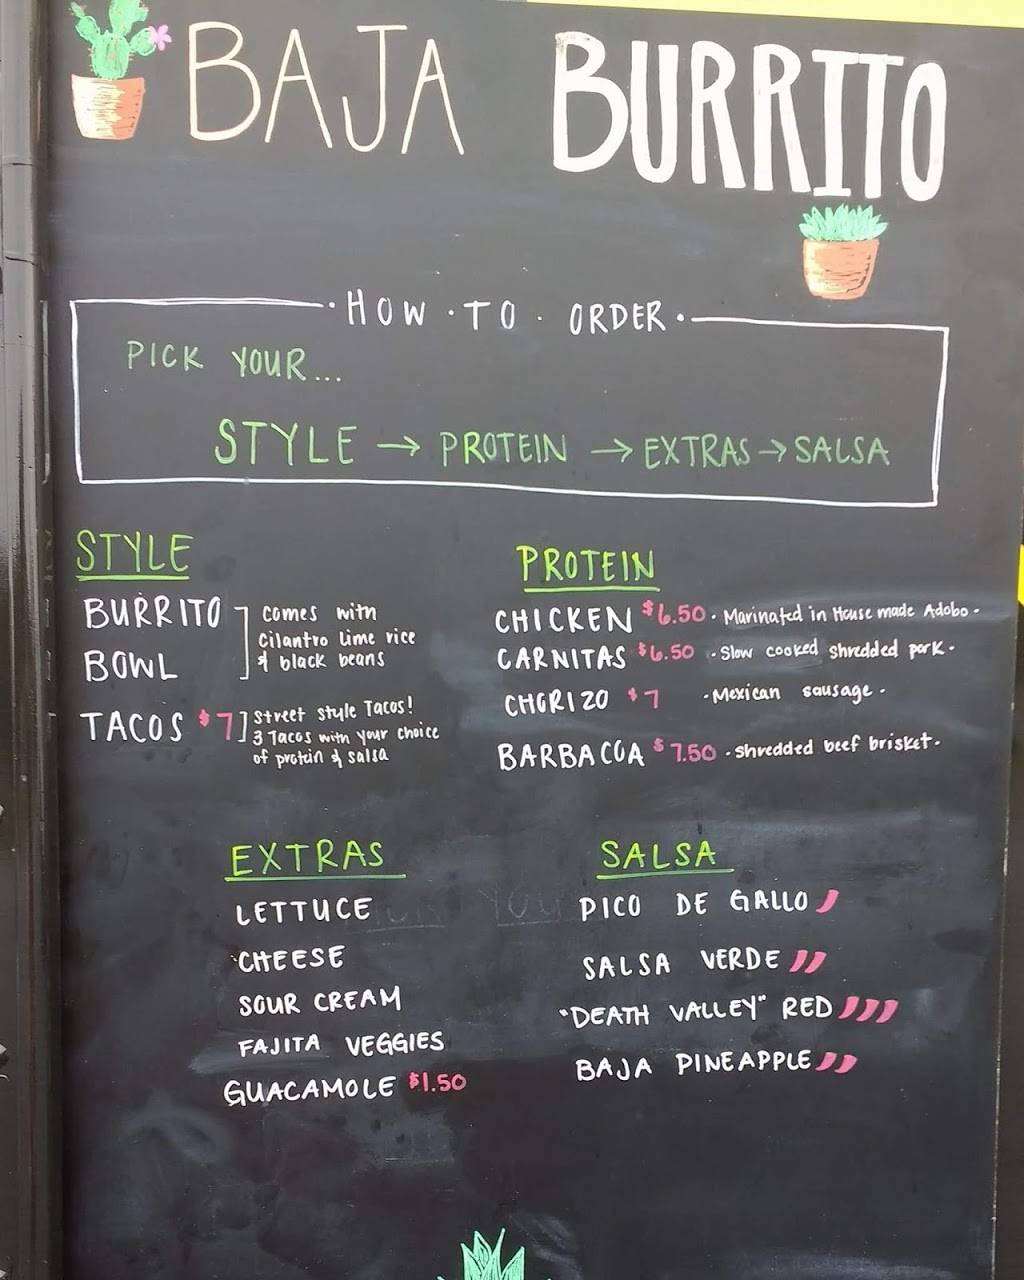 BAJA BURRITO
· HOW · TO · ORDER ·
PICK YOUR...
STYLE → PROTEIN → EXTRAS → SALSA
STYLE
BURRITO
BOWL
comes with
Cilantro lime rice
& black beans
TACOS $7
Street style Tacos!
3 Tacos with your choice
of protein & salsa
PROTEIN
CHICKEN $6.50 · Marinated in House made Adobo ·
CARNITAS $6.50 · Slow cooked shredded pork ·
CHORIZO $7 · Mexican sausage ·
BARBACOA $7.50 · shredded beef brisket ·
EXTRAS
LETTUCE
CHEESE
SOUR CREAM
FAJITA VEGGIES
GUACAMOLE $1.50
SALSA
PICO DE GALLO
SALSA VERDE
"DEATH VALLEY" RED
BAJA PINEAPPLE